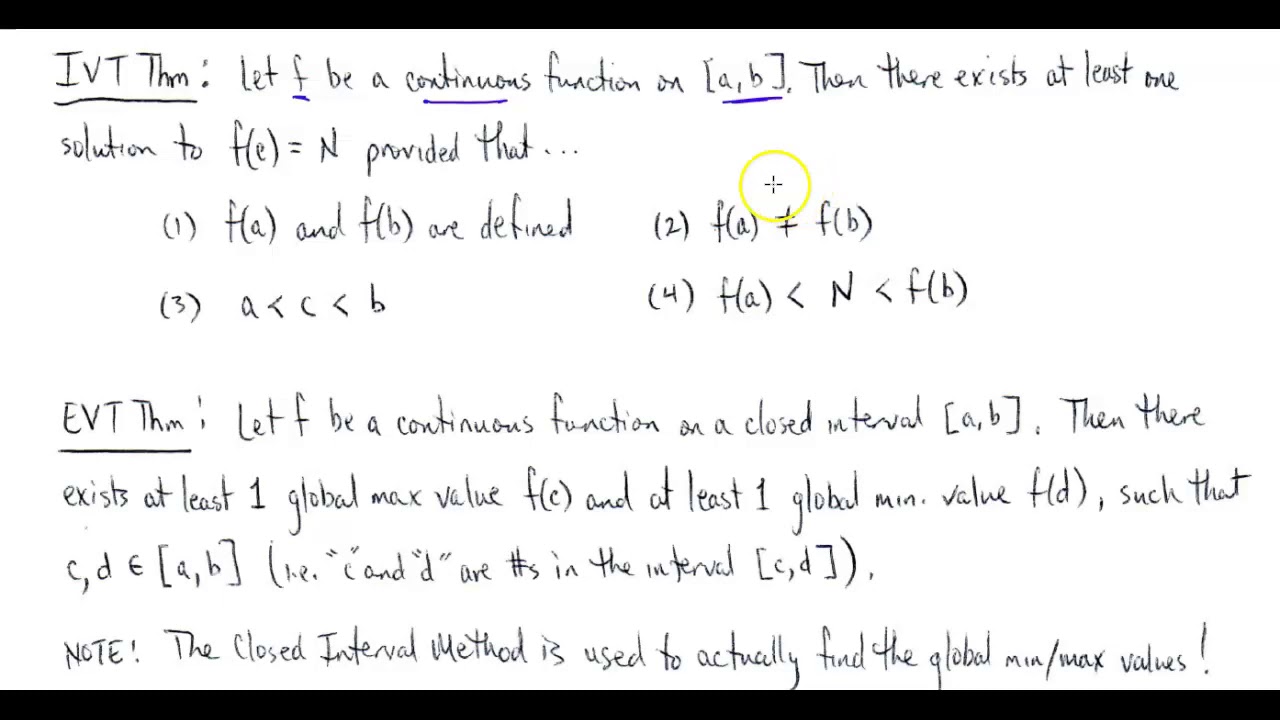 IVT Thm: Let f be a continuous function on [a,b]. Then there exists at least one
solution to f(c) = N provided that...
(1) f(a) and f(b) are defined (2) f(a) ≠ f(b)
(3) a < c < b (4) f(a) < N < f(b)
EVT Thm: Let f be a continuous function on a closed interval [a,b]. Then there
exists at least 1 global max value f(c) and at least 1 global min. value f(d), such that
c,d ∈ [a,b] (i.e. "c" and "d" are #s in the interval [c,d]).
NOTE! The Closed Interval Method is used to actually find the global min/max values!